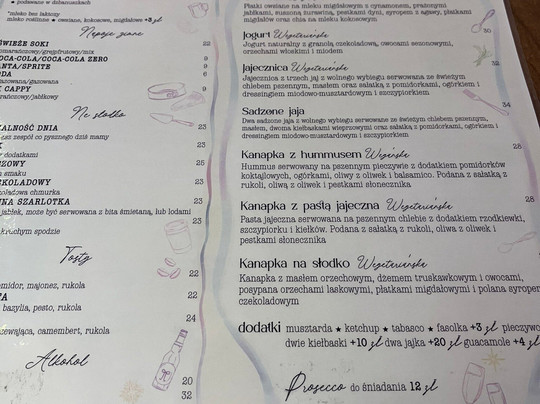 ★ podawane w dzbanuszkach
*mleko bez laktozy
mleko roślinne ★ owsiane, kokosowe, migdałowe +3 zł
Napoje zimne
ŚWIEŻE SOKI 22
pomarańczowy/grejpfrutowy/mix
COCA-COLA/COCA-COLA ZERO 9
FANTA/SPRITE 9
WODA 9
gazowana/gazowana 9
CAPPY 9
pomarańczowy/jabłkowy
Na słodko
dnia 23
zez zespół co pysznego dziś mamy
23
dodatkami
25
smaku
23
czekoladowa chmurka
SZARLOTKA 23
jabłek, może być serwowana z bita śmietaną, lub lodami
23
kruchym spodzie
Tosty
22
pomidor, majonez, rukola
22
bazylia, pesto, rukola
24
żurawina, camembert, rukola
Alkohol
20
32
Płatki owsiane na mleku migdałowym z cynamonem, prażonymi
jabłkami, suszoną żurawiną, pestkami dyni, syropem z agawy, płatkami
migdałów oraz chia na mleku kokosowym
30
Jogurt Wegetariańskie
Jogurt naturalny z granolą czekoladową, owocami sezonowymi,
orzechami włoskimi i miodem
32
Jajecznica Wegetariańska
Jajecznica z trzech jaj z wolnego wybiegu serwowana ze świeżym
chlebem pszennym, masłem oraz sałatką z pomidorkami, ogórkiem i
dressingiem miodowo-musztardowym i szczypiorkiem
34
Sadzone jaja
Dwa sadzone jaja z wolnego wybiegu serwowane ze świeżym chlebem pszennym,
masłem, dwoma kiełbaskami wieprzowymi oraz sałatką z pomidorkami, ogórkiem i
dressingiem miodowo-musztardowym i szczypiorkiem
28
Kanapka z hummusem Wegańska
Hummus serwowany na pszennym pieczywie z dodatkiem pomidorków
koktajlowych, ogórków, oliwy z oliwek i balsamico. Podana z sałatką z
rukoli, oliwą z oliwek i pestkami słonecznika
28
Kanapka z pastą jajeczną Wegetariańska
Pasta jajeczna serwowana na pszennym chlebie z dodatkiem rzodkiewki,
szczypiorku i kiełków. Podana z sałatką z rukoli, oliwą z oliwek i
pestkami słonecznika
Kanapka na słodko Wegetariańska
Kanapka z masłem orzechowym, dżemem truskawkowym i owocami,
posypana orzechami laskowymi, płatkami migdałowymi i polana syropem
czekoladowym
dodatki musztarda ★ ketchup ★ tabasco ★ fasolka +3 zł pieczywo
dwie kiełbaski +10 zł dwa jajka +20 zł guacamole +4 zł
Prosecco do śniadania 12 zł